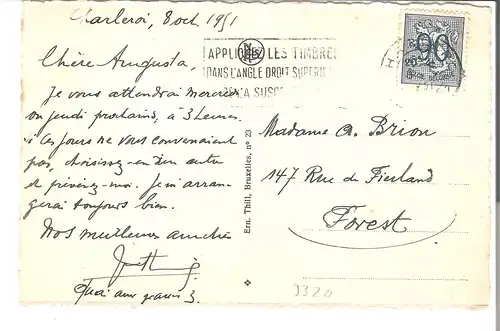 Charleroi, 8 oct. 1951
Chère Augusta,
Je vous attendrai mercredi
ou jeudi prochains, à 3 heures.
Si ces jours ne vous convenaient
pas, choisissez-en un autre
et prévenez-moi. Je m'arran-
gerai toujours bien.
Nos meilleures amitiés
Quai aux
APPLIQUEZ LES TIMBRES
DANS L'ANGLE DROIT SUPERIEUR
90
BELGIE-BELGIQUE
Ern. Thill, Bruxelles, nº 23
Madame A. Brion
147 Rue de Fierland
Forest
3320